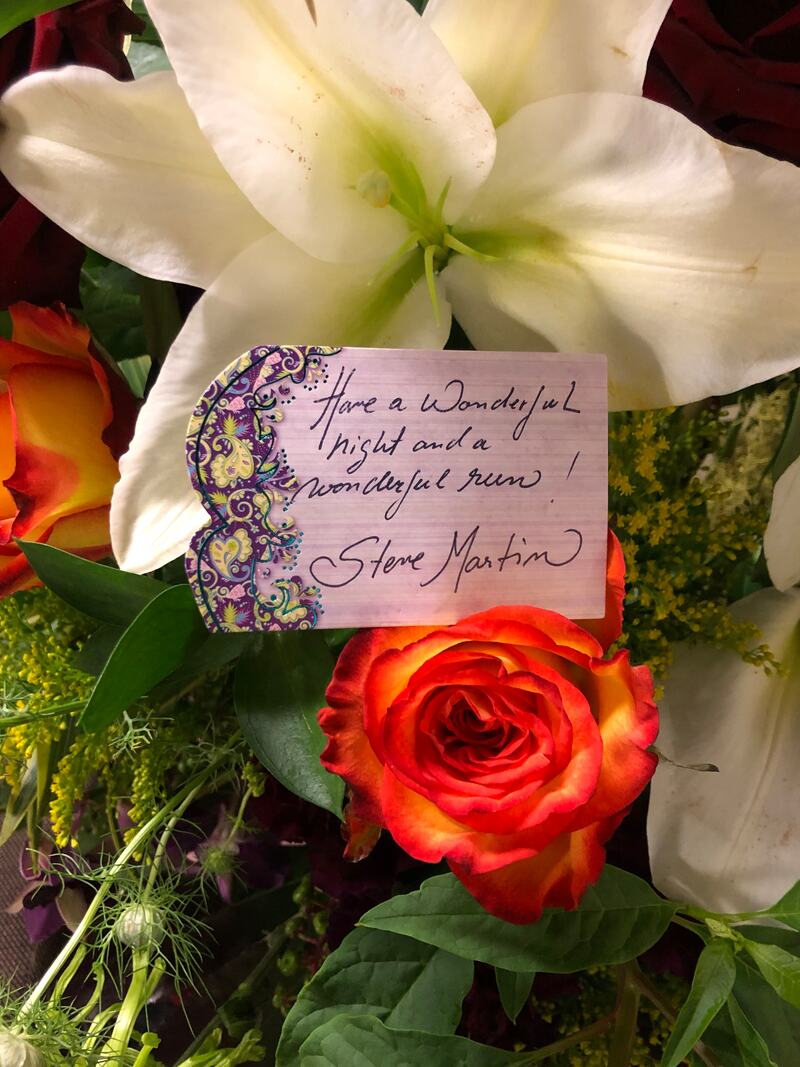 Have a Wonderful
night and a
wonderful run!
Steve Martin